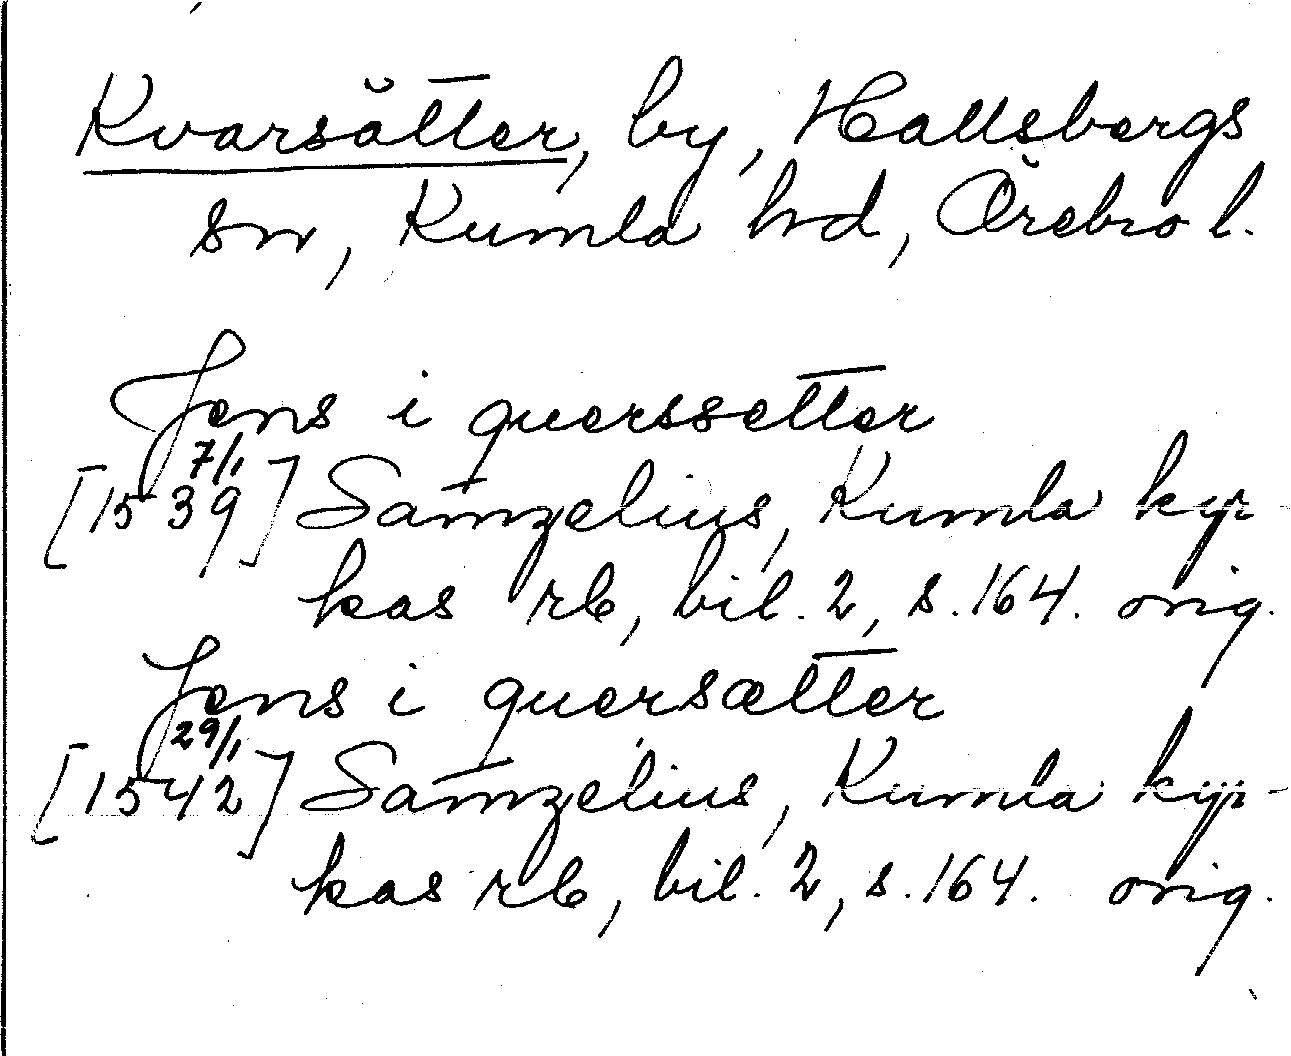 Kvarsätter, by, Hallsbergs
sn, Kumla hd, Örebro l.
Jens i querssetter
7/1
[1539] Samzelius, Kumla kyr-
kas rb, bil. 2, s. 164. orig.
Jens i quersætter
29/1
[1542] Samzelius, Kumla kyr-
kas rb, bil. 2, s. 164. orig.